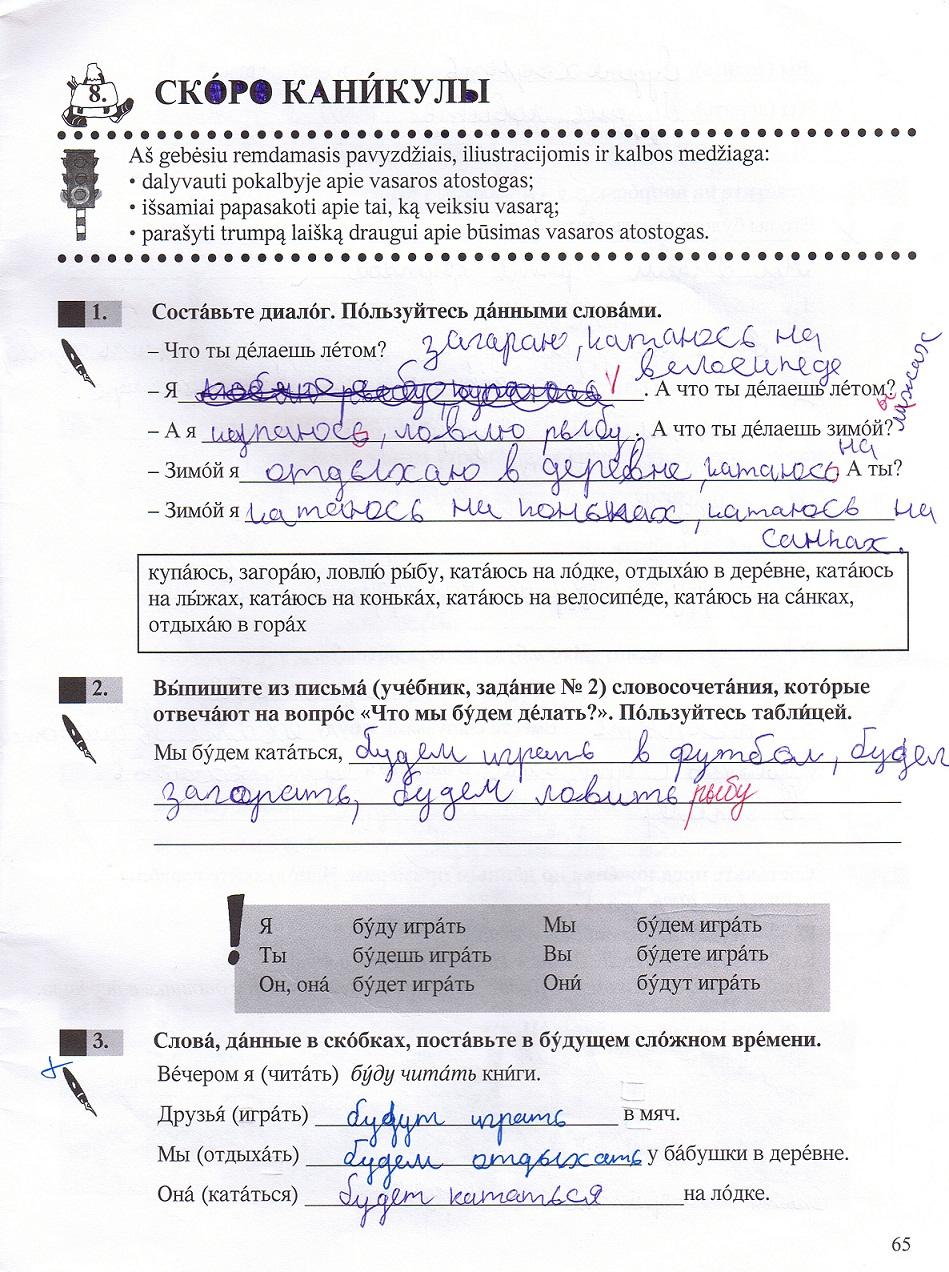 8.
СКО́РО КАНИ́КУЛЫ
Aš gebėsiu remdamasis pavyzdžiais, iliustracijomis ir kalbos medžiaga:
• dalyvauti pokalbyje apie vasaros atostogas;
• išsamiai papasakoti apie tai, ką veiksiu vasarą;
• parašyti trumpą laišką draugui apie būsimas vasaros atostogas.
1. Соста́вьте диало́г. По́льзуйтесь да́нными слова́ми.
– Что ты де́лаешь ле́том? загараю, катаюсь на
велосипеде
– Я . А что ты де́лаешь ле́том?
– А я купаюсь, ловлю рыбу. А что ты де́лаешь зимо́й?
– Зимо́й я отдыхаю в деревне, катаюсь на лыжах. А ты?
– Зимо́й я катаюсь на коньках, катаюсь на
санках.
купа́юсь, загора́ю, ловлю́ ры́бу, ката́юсь на ло́дке, отдыха́ю в дере́вне, ката́юсь
на лы́жах, ката́юсь на конька́х, ката́юсь на велосипе́де, ката́юсь на са́нках,
отдыха́ю в гора́х
2. Вы́пишите из письма́ (уче́бник, зада́ние № 2) словосочета́ния, кото́рые
отвеча́ют на вопро́с «Что мы бу́дем де́лать?». По́льзуйтесь табли́цей.
Мы бу́дем ката́ться, будем играть в футбол, будем
загорать, будем ловить рыбу
! Я бу́ду игра́ть Мы бу́дем игра́ть
Ты бу́дешь игра́ть Вы бу́дете игра́ть
Он, она́ бу́дет игра́ть Они́ бу́дут игра́ть
3. Слова́, да́нные в ско́бках, поста́вьте в бу́дущем сло́жном вре́мени.
Ве́чером я (чита́ть) бу́ду чита́ть кни́ги.
Друзья́ (игра́ть) будут играть в мяч.
Мы (отдыха́ть) будем отдыхать у ба́бушки в дере́вне.
Она́ (ката́ться) будет кататься на ло́дке.
65